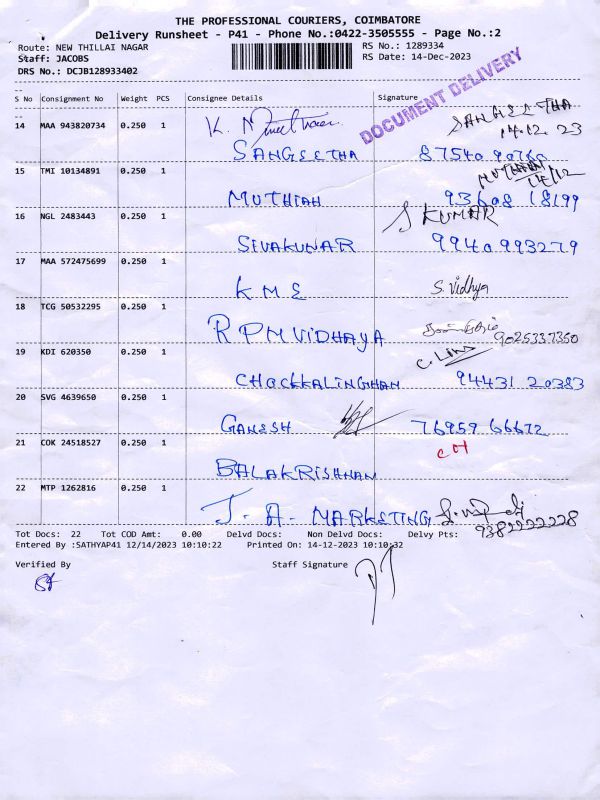 THE PROFESSIONAL COURIERS, COIMBATORE
Delivery Runsheet - P41 - Phone No.:0422-3505555 - Page No.:2
Route: NEW THILLAI NAGAR
RS No.: 1289334
Staff: JACOBS
RS Date: 14-Dec-2023
DRS No.: DCJB128933402
DOCUMENT DELIVERY
S No Consignment No Weight PCS Consignee Details Signature
SANGEETHA
14.12.23
14 MAA 943820734 0.250 1
SANGEETHA 87540 90760
15 TMI 10134891 0.250 1 14/12
MUTHIAH 93608 18199
16 NGL 2483443 0.250 1 S KUMAR
SIVAKUMAR 9940993279
17 MAA 572475699 0.250 1
KME S. Vidhya
18 TCG 50532295 0.250 1
RPM VIDHAYA 9025337350
19 KDI 620350 0.250 1
CHOCKKALINGHAM 94431 20383
20 SVG 4639650 0.250 1
GANESH 76959 66672
21 COK 24518527 0.250 1
BALAKRISHNAN
22 MTP 1262816 0.250 1
J. A. MARKETING
9382222228
Tot Docs: 22 Tot COD Amt: 0.00 Delvd Docs: Non Delvd Docs: Delvy Pts:
Entered By :SATHYAP41 12/14/2023 10:10:22 Printed On: 14-12-2023 10:10:32
Verified By Staff Signature